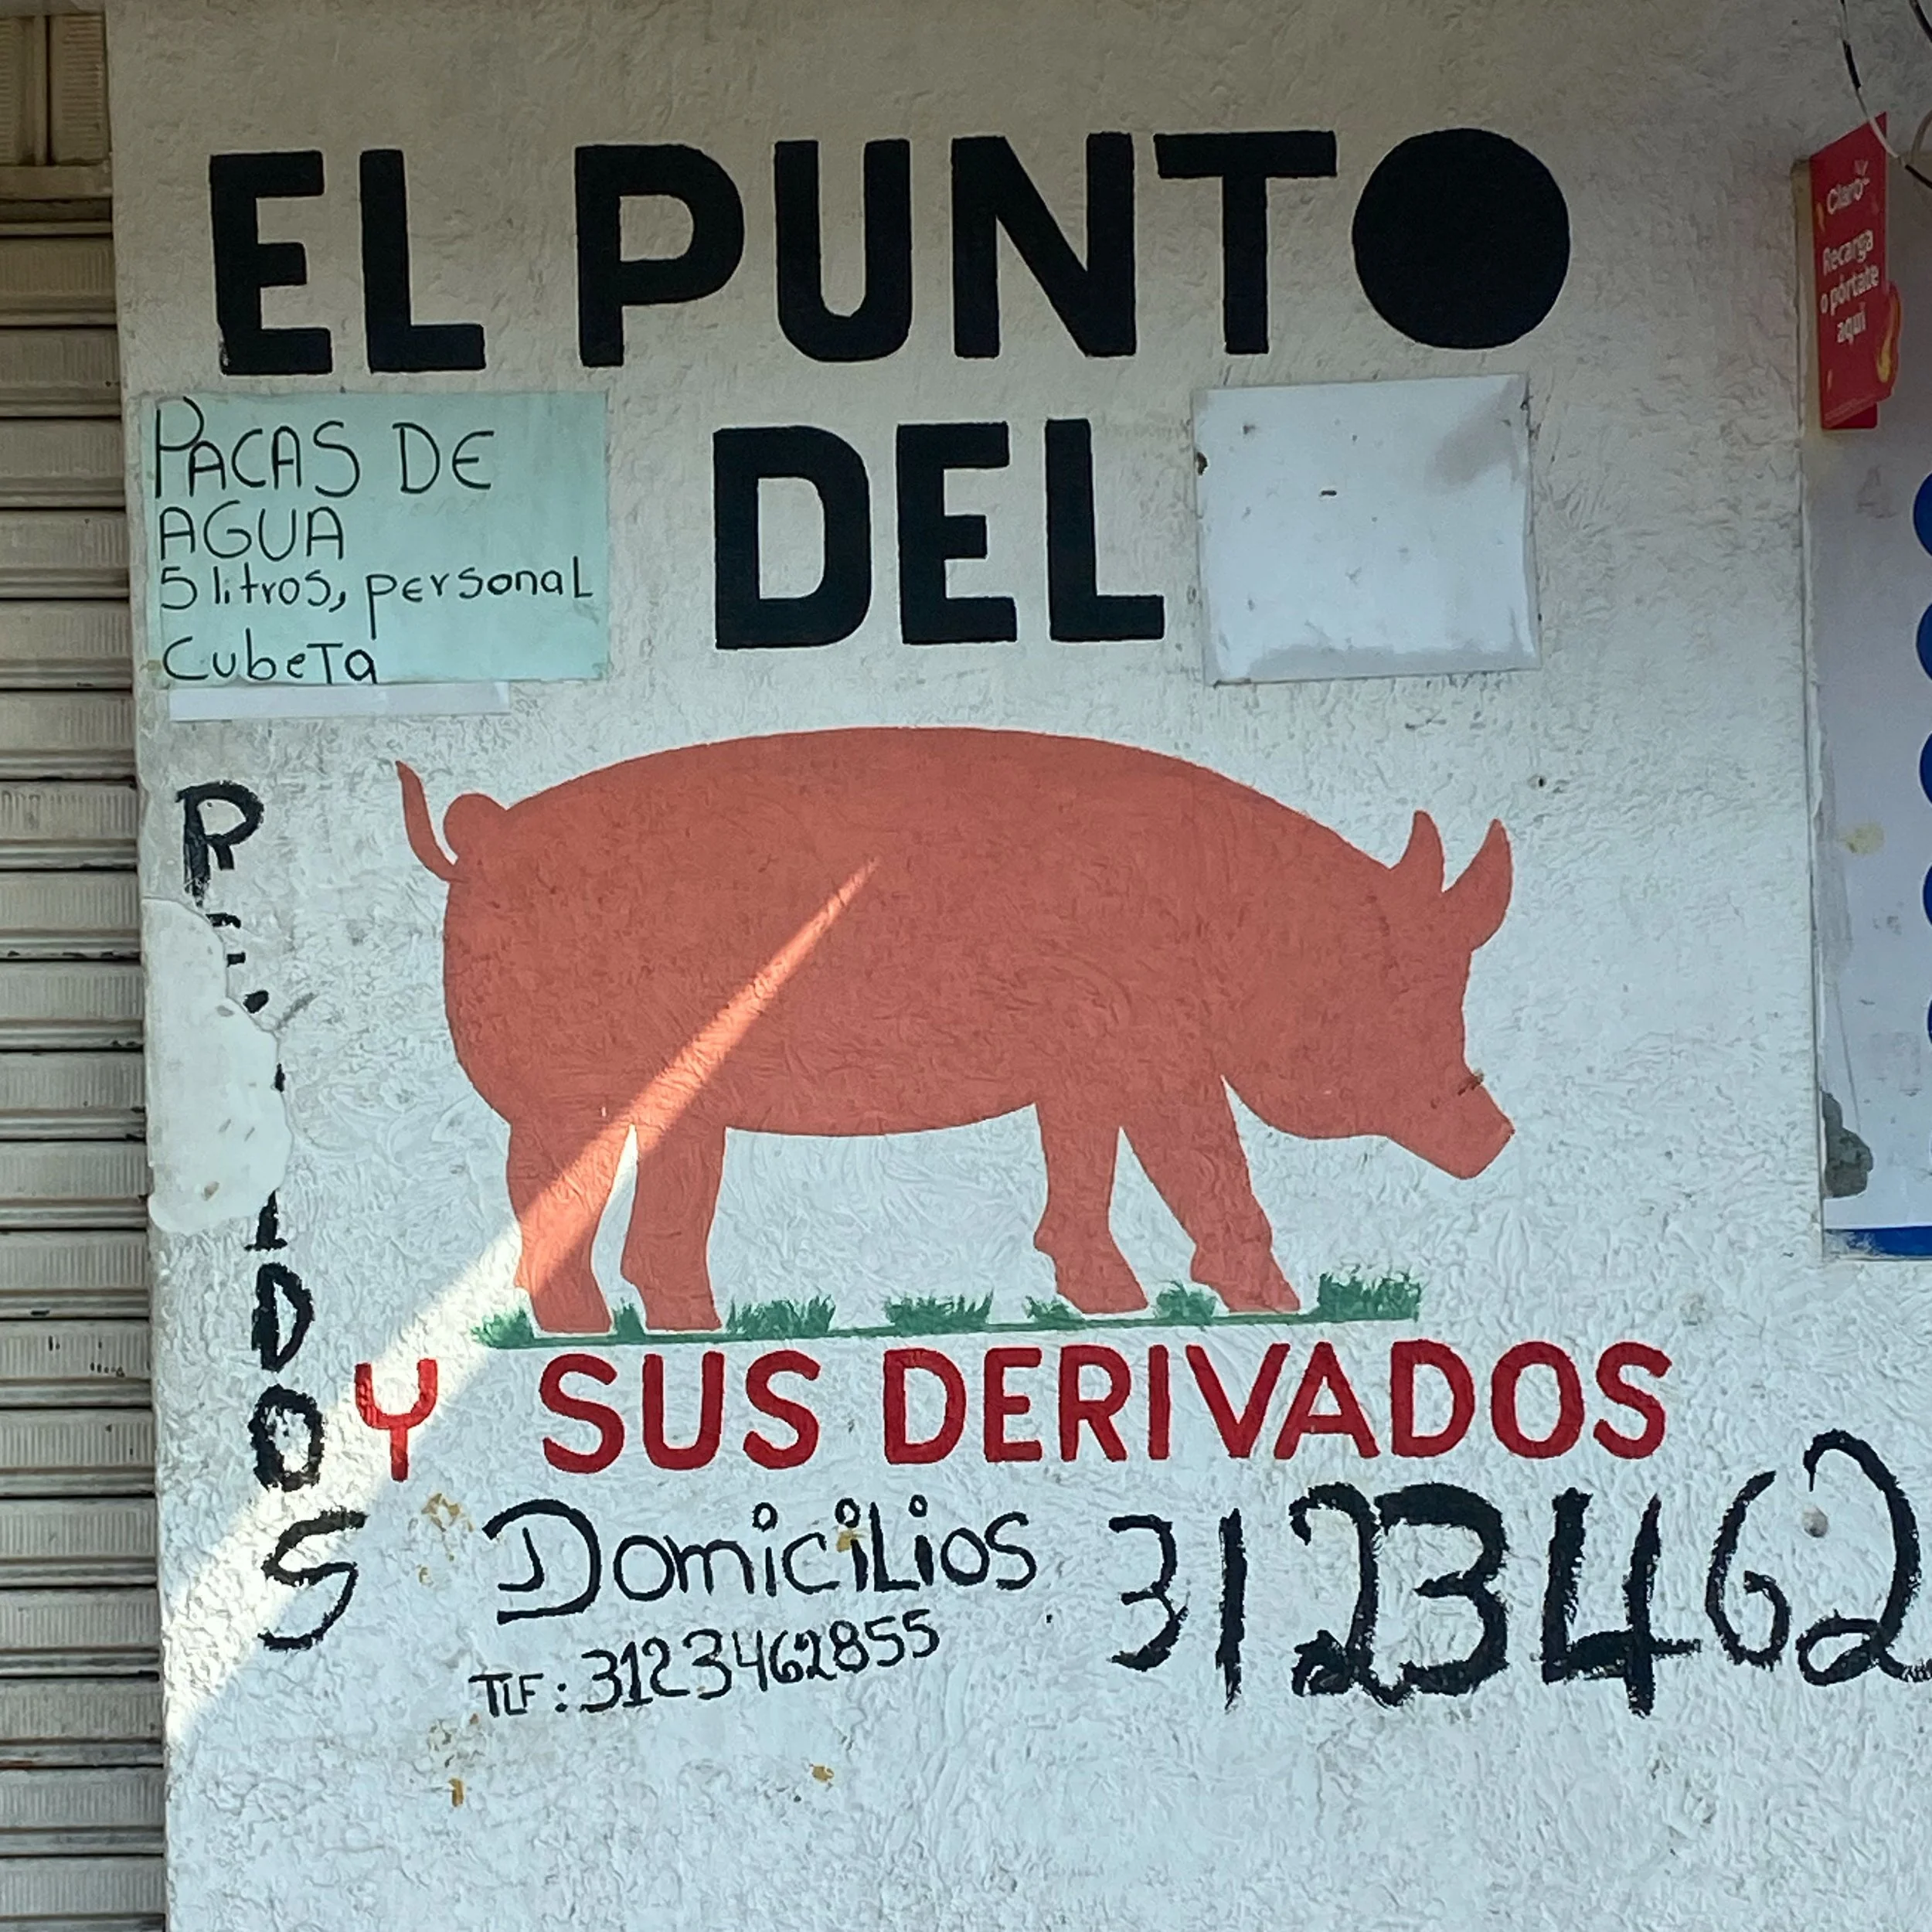 EL PUNTO
DEL
PACAS DE
AGUA
5 litros, personal
Cubeta
Claro
Recarga
o pórtate
aquí
Y SUS DERIVADOS
DomiciLios
TLF: 3123462855
3123462